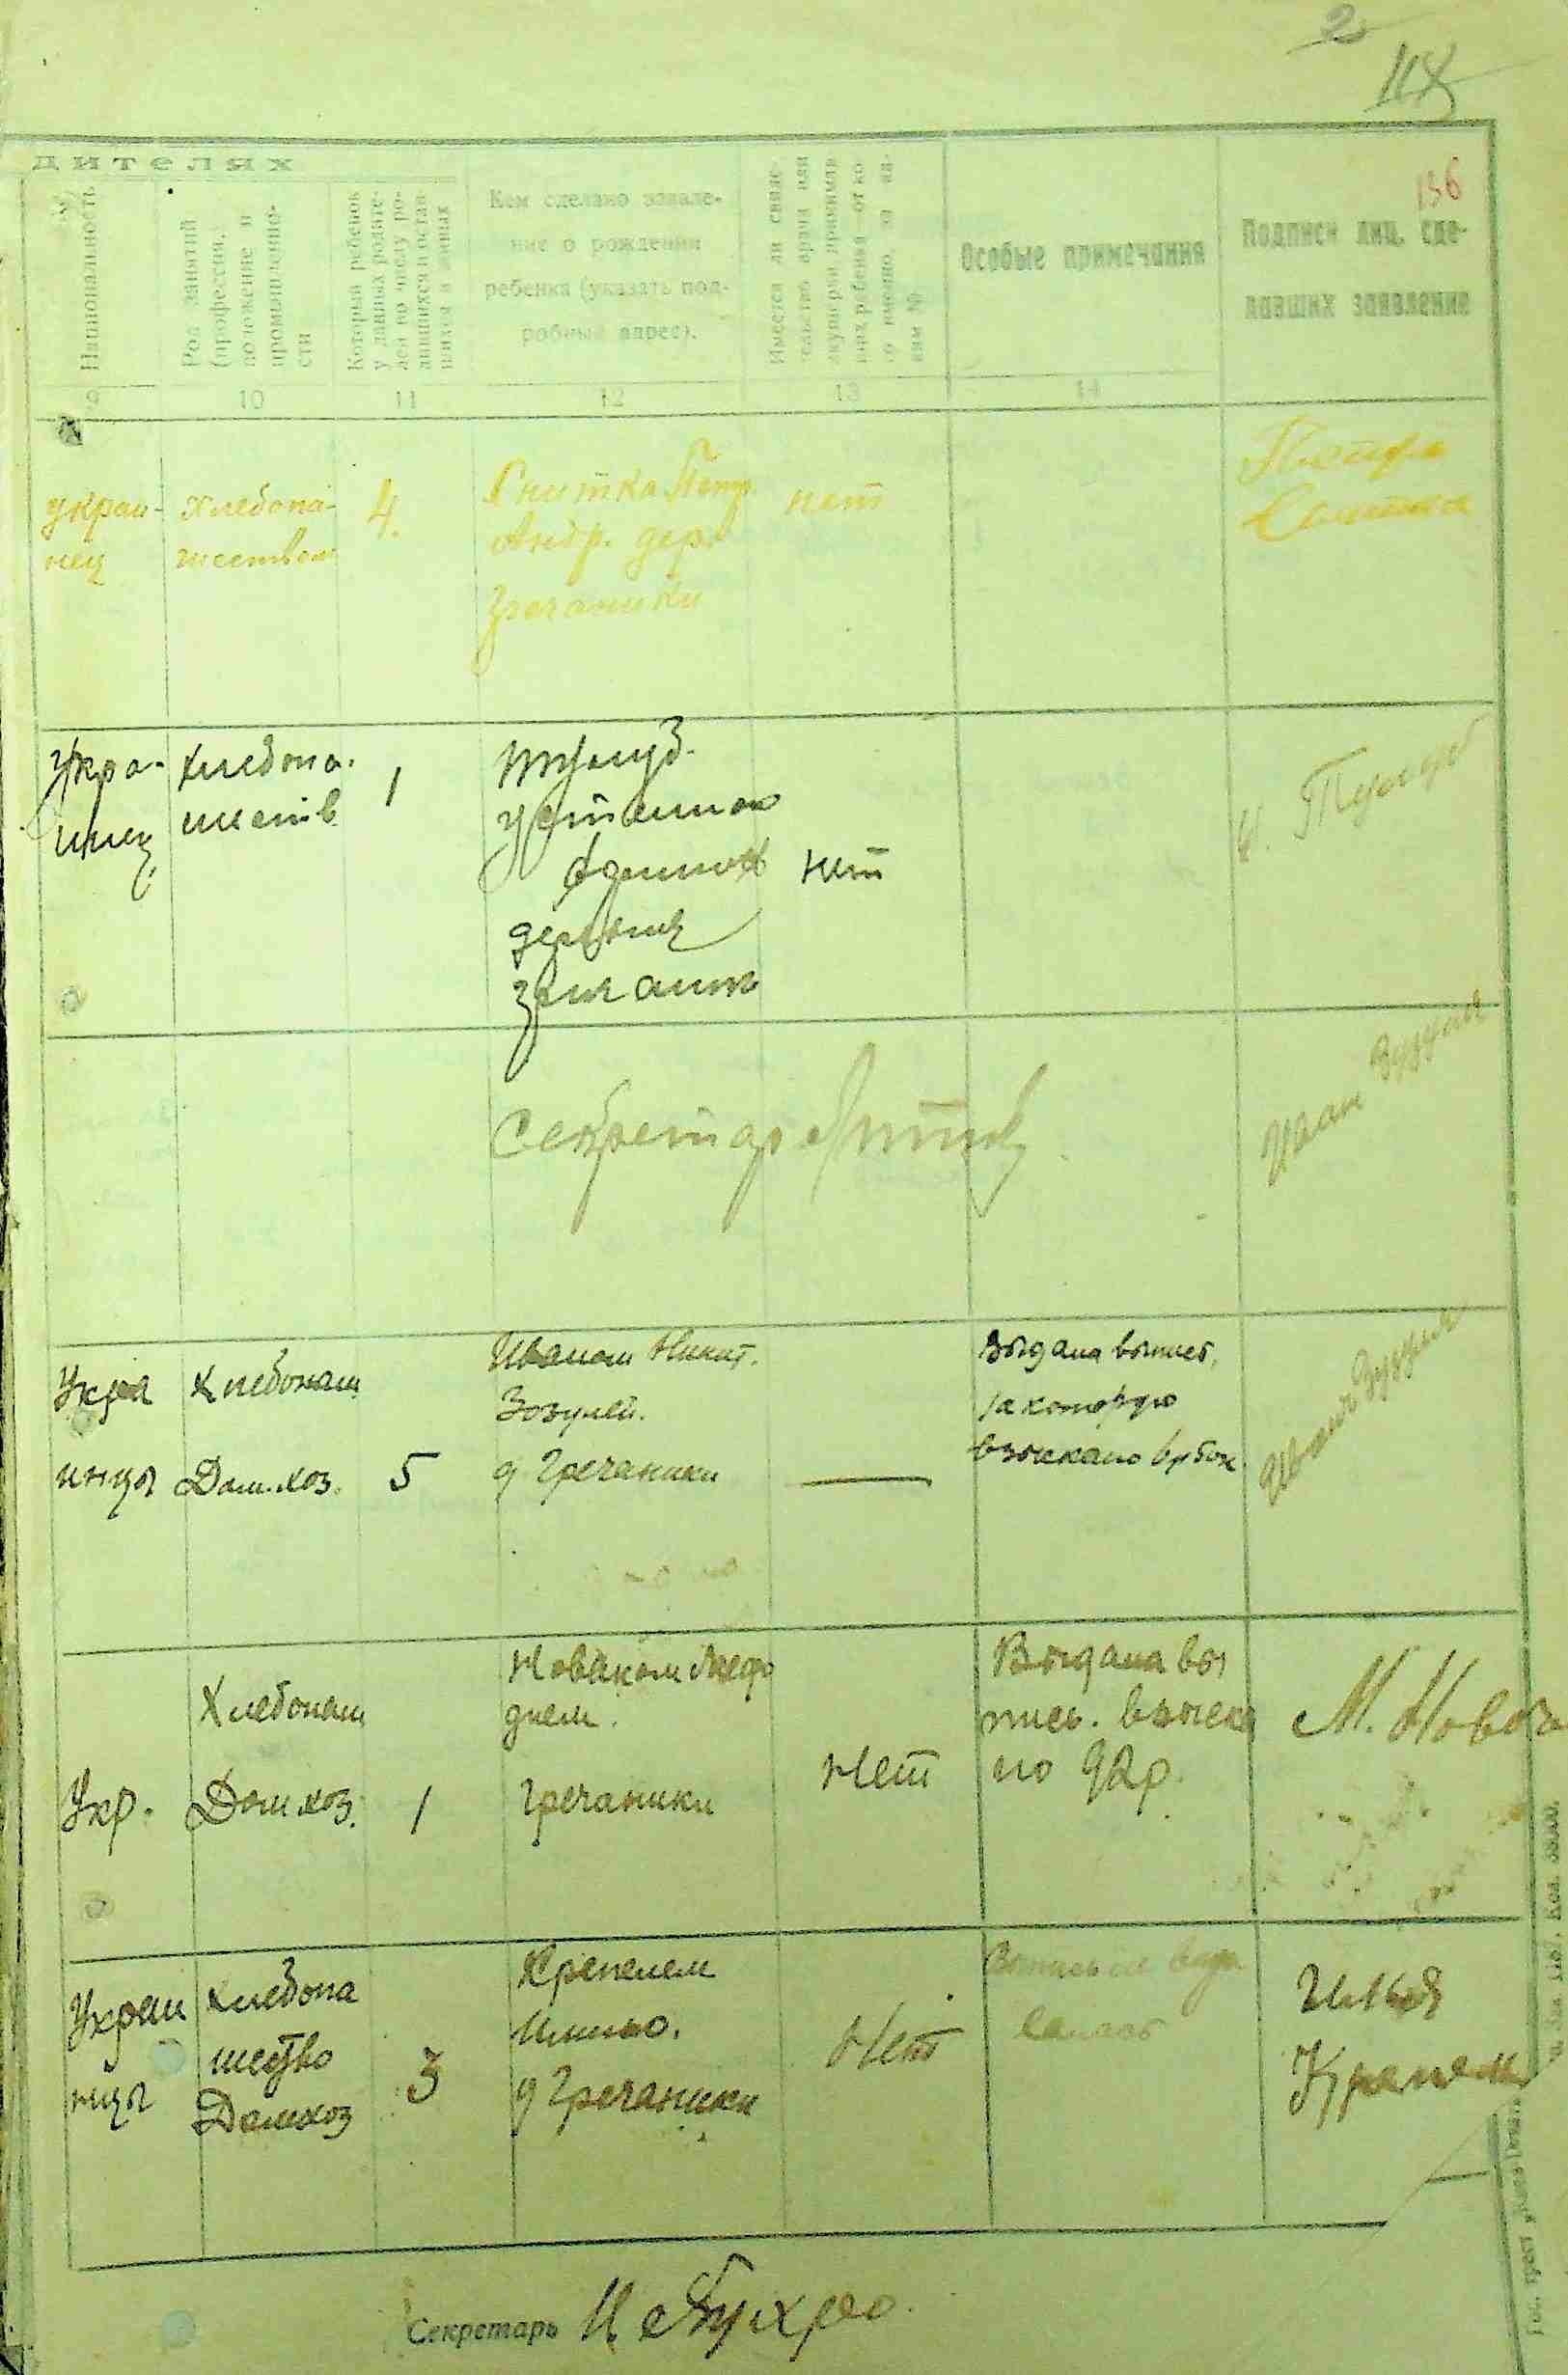 2
118
136
дителях
Национальность
Род занятий
(профессия,
положение и
промышленно-
сти
Который ребенок
у данных родите-
лей по числу ро-
дившихся и остав-
шихся в живых
Кем сделано заявле-
ние о рождении
ребенка (указать под-
робный адрес).
Имеется ли свиде-
тельство врача или
акушерки, принимав-
ших ребенка, от ко-
го именно, за ка-
ким №
Особые примечания
Подписи лиц, сде-
лавших заявление
9 10 11 12 13 14
украи-
нец
Хлебопа-
шеством
4.
Снитка Петр
Андр. дер.
Гречаники
нет
Петр
Снитка
Укра-
инец
Хлебопа.
шеств
1
деревня
нет
Секретар
Иван Зузуля
Укра
инцы
Хлебопаш
Дом.хоз.
5
Иваном Никит.
Зозулей.
д Гречаники
—
Выдана выпис,
за которую
взыскано
Иван Зузуля
Укр.
Хлебопаш
Дом.хоз.
1
Новаком Мефо
дием.
Гречаники
Нет
Выдана вы
пись. взыска
но 92р.
М. Новак
Украи
нцы
Хлебопа
шество
Домхоз
3
Крепелем
Ильею.
д Гречаники
Нет
Выпись не выда
валась
Илья
Крепель
Секретарь